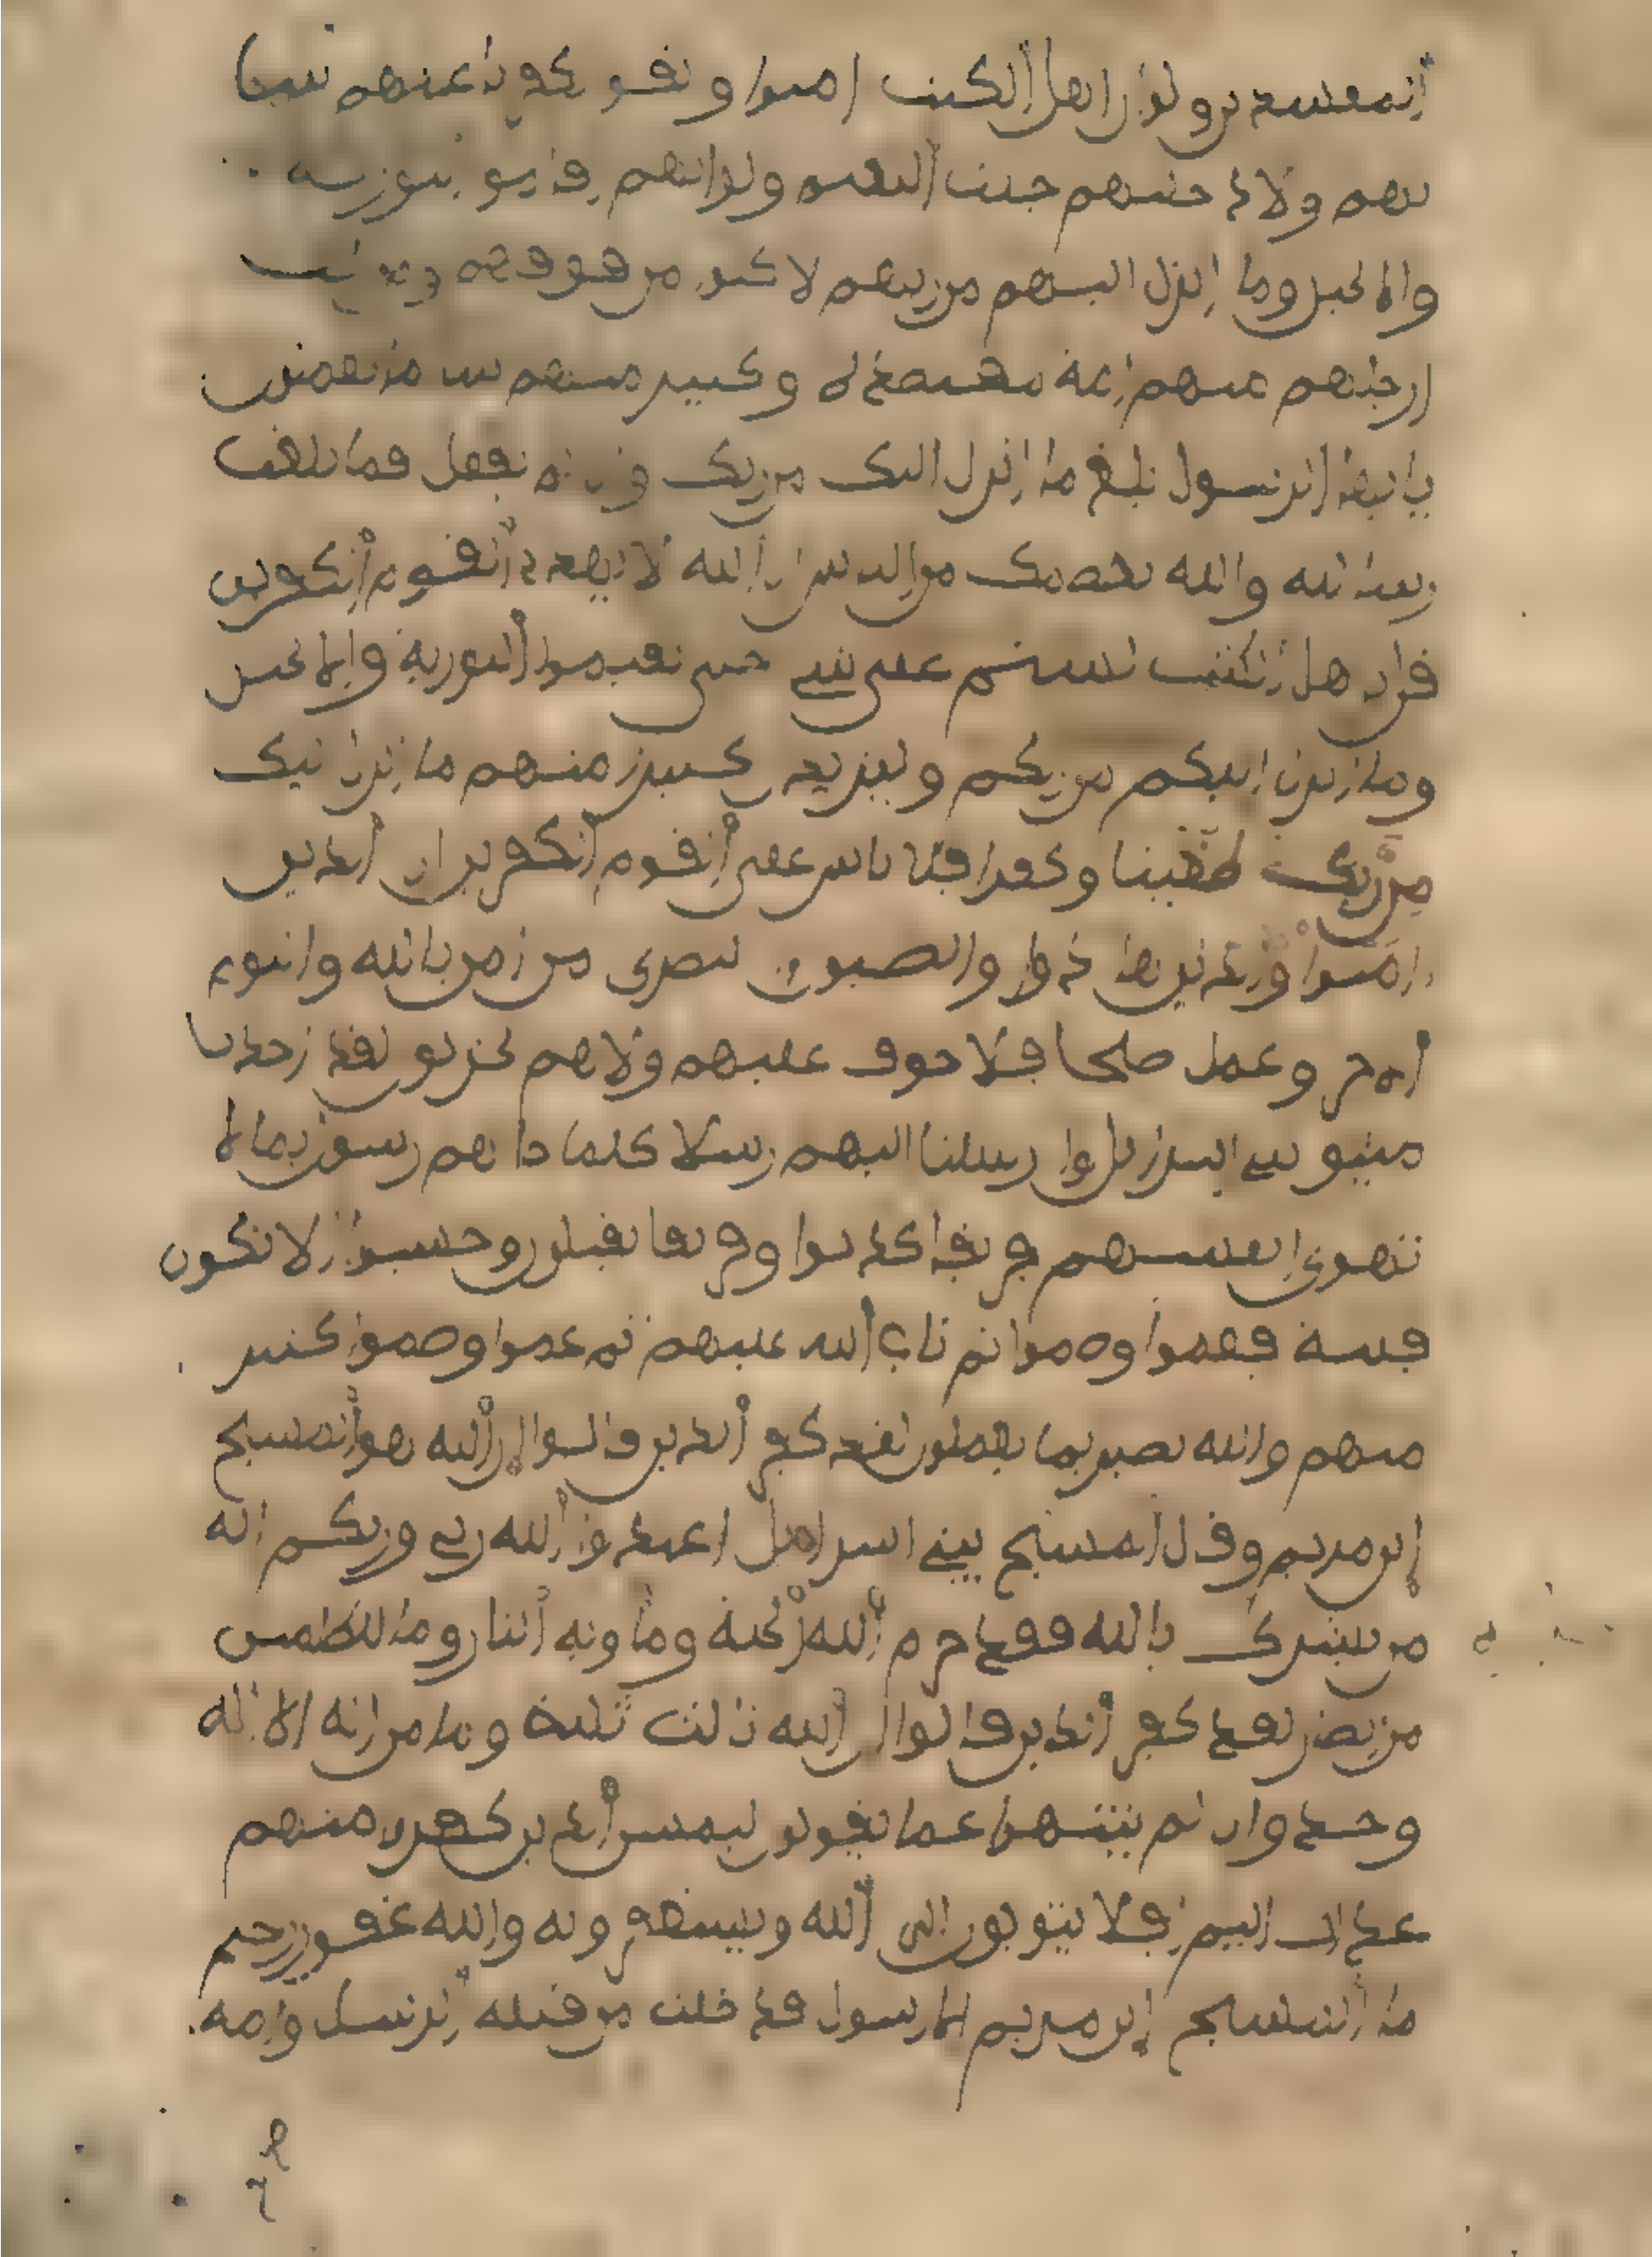 المفسدين ولو ان اهل الكتب امنوا واتقوا لكفرنا عنهم سيا
تهم ولادخلنهم جنت النعيم ولو انهم اقاموا التوريه
والانجيل وما انزل اليهم من ربهم لاكلوا من فوقهم ومن تحت
ارجلهم منهم امة مقتصدة وكثير منهم سا ما يعملون
يايها الرسول بلغ ما انزل اليك من ربك وان لم تفعل فما بلغت
رسالته والله يعصمك من الناس ان الله لا يهدي القوم الكفرين
قل ياهل الكتب لستم على شي حتى تقيموا التورية والانجيل
وما انزل اليكم من ربكم وليزيدن كثيرا منهم ما انزل اليك
من ربك طغينا وكفرا فلا تاس على القوم الكفرين ان الذين
امنوا والذين هادوا والصبون والنصرى من امن بالله واليوم
الاخر وعمل صلحا فلا خوف عليهم ولا هم يحزنون لقد اخذنا
ميثق بني اسرايل وارسلنا اليهم رسلا كلما جاهم رسول بما لا
تهوى انفسهم فريقا كذبوا وفريقا يقتلون وحسبوا الا تكون
فتنة فعموا وصموا ثم تاب الله عليهم ثم عموا وصموا كثير
منهم والله بصير بما يعملون لقد كفر الذين قالوا ان الله هو المسيح
ابن مريم وقال المسيح يبني اسرايل اعبدوا الله ربي وربكم انه
من يشرك بالله فقد حرم الله الجنة وماويه النار وما للظلمين
من انصار لقد كفر الذين قالوا ان الله ثالث ثلثة وما من اله الا اله
وحد وان لم ينتهوا عما يقولون ليمسن الذين كفروا منهم
عذاب اليم افلا يتوبون الى الله ويستغفرونه والله غفور رحيم
ما المسيح ابن مريم الا رسول قد خلت من قبله الرسل وامه